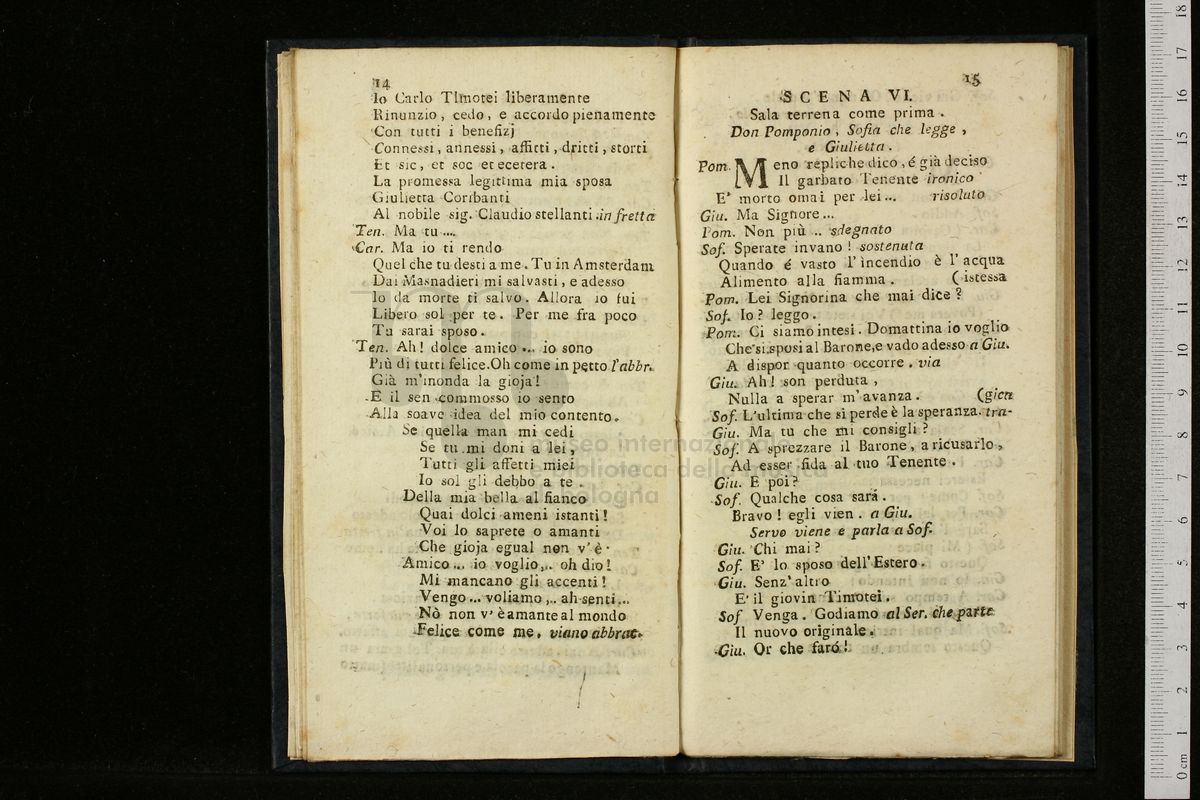 14
Io Carlo TImotei liberamente
Rinunzio, cedo, e accordo pienamente
Con tutti i benefizj
Connessi, annessi, affitti, dritti, storti
Et sic, et soc et ecetera.
La promessa legittima mia sposa
Giulietta Coribanti
Al nobile sig. Claudio stellanti. in fretta
Ten. Ma tu ....
Car. Ma io ti rendo
Quel che tu desti a me. Tu in Amsterdam
Dai Masnadieri mi salvasti, e adesso
Io da morte ti salvo. Allora io fui
Libero sol per te. Per me fra poco
Tu sarai sposo.
Ten. Ah! dolce amico ... io sono
Più di tutti felice. Oh come in petto l'abbr.
Già m'inonda la gioja!
E il sen commosso io sento
Alla soave idea del mio contento.
Se quella man mi cedi
Se tu mi doni a lei,
Tutti gli affetti miei
Io sol gli debbo a te.
Della mia bella al fianco
Quai dolci ameni istanti!
Voi lo saprete o amanti
Che gioja egual non v'è
Amico ... io voglio,.. oh dio!
Mi mancano gli accenti!
Vengo ... voliamo ,.. ah senti...
Nò non v'è amante al mondo
Felice come me. viano abbrac.
15
SCENA VI.
Sala terrena come prima.
Don Pomponio, Sofia che legge,
e Giulietta.
Pom. Meno repliche dico, é già deciso
Il garbato Tenente ironico
E' morto omai per lei... risoluto
Giu. Ma Signore...
Pom. Non più .. sdegnato
Sof. Sperate invano! sostenuta
Quando é vasto l'incendio è l'acqua
Alimento alla fiamma. (istessa
Pom. Lei Signorina che mai dice?
Sof. Io? leggo.
Pom. Ci siamo intesi. Domattina io voglio
Che si sposi al Barone, e vado adesso a Giu.
A dispor quanto occorre. via
Giu. Ah! son perduta,
Nulla a sperar m'avanza. (gica
Sof. L'ultima che si perde è la speranza. tra-
Giu. Ma tu che mi consigli?
Sof. A sprezzare il Barone, a ricusarlo,
Ad esser fida al tuo Tenente.
Giu. E poi?
Sof. Qualche cosa sará.
Bravo! egli vien. a Giu.
Servo viene e parla a Sof.
Giu. Chi mai?
Sof. E' lo sposo dell'Estero.
Giu. Senz'altro
E' il giovin Timotei.
Sof Venga. Godiamo al Ser. che parte
Il nuovo originale.
Giu. Or che faró!
museo internazionale
e biblioteca della musica
bologna
0 cm 1 2 3 4 5 6 7 8 9 10 11 12 13 14 15 16 17 18